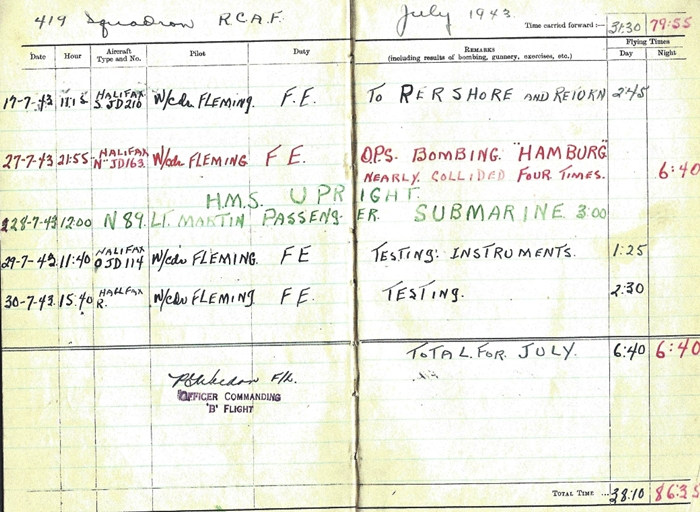 419 Squadron R.C.A.F. July 1943. Time carried forward :— 31:30 79:55
Date Hour Aircraft Type and No. Pilot Duty REMARKS (including results of bombing, gunnery, exercises, etc.) Flying Times Day Night
17-7-43 11:15 HALIFAX S JD210 W/cdr FLEMING. F.E. TO PERSHORE AND RETURN 2:45
27-7-43 21:55 HALIFAX "N" JD163. W/cdr FLEMING F E. OPS. BOMBING. "HAMBURG"
NEARLY. COLLIDED FOUR TIMES. 6:40
H.M.S. UPRIGHT.
28-7-43 12:00 N 89. LT. MARTIN PASSENGER. SUBMARINE 3:00
29-7-43 11:40 HALIFAX O JD114 W/cdr FLEMING. F E TESTING. INSTRUMENTS. 1:25
30-7-43. 15:40 HALIFAX R. W/cdr FLEMING. F E. TESTING. 2:30
TOTAL. FOR. JULY. 6:40 6:40
F/L.
OFFICER COMMANDING
'B' FLIGHT
TOTAL TIME ... 38:10 86:35